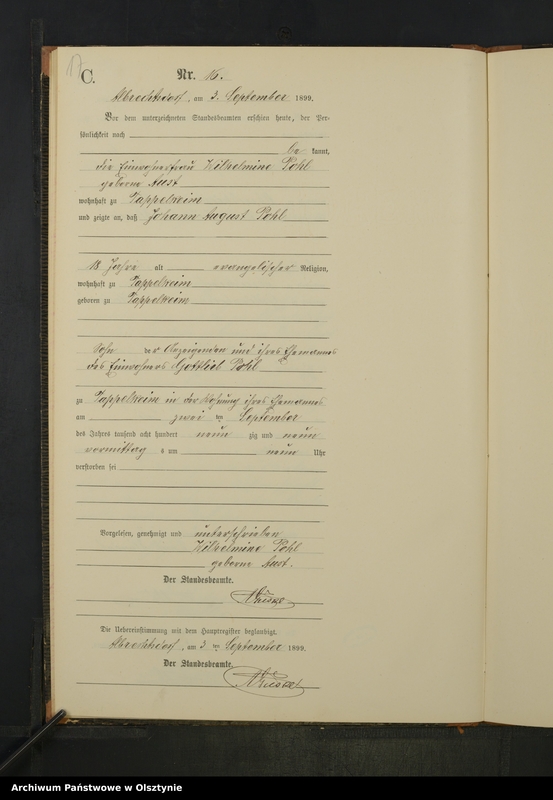 17
C.
Nr. 16.
Albrechtsdorf, am 3. September 1899.
Vor dem unterzeichneten Standesbeamten erschien heute, der Per-
sönlichkeit nach
be kannt,
die Einwohnerfrau Wilhelmine Pohl
geborne Aust
wohnhaft zu Tappelkeim
und zeigte an, daß Johann August Pohl
18 Jahre alt evangelischer Religion,
wohnhaft zu Tappelkeim
geboren zu Tappelkeim
Sohn der Anzeigenden und ihres Ehemannes
des Einwohners Gottlieb Pohl
zu Tappelkeim in der Wohnung ihres Ehemannes
am zwei ten September
des Jahres tausend acht hundert neun zig und neun
vormittag s um neun Uhr
verstorben sei
Vorgelesen, genehmigt und unterschrieben
Wilhelmine Pohl
geborne Aust.
Der Standesbeamte.
Die Uebereinstimmung mit dem Hauptregister beglaubigt.
Albrechtsdorf, am 3 ten September 1899.
Der Standesbeamte.
Archiwum Państwowe w Olsztynie